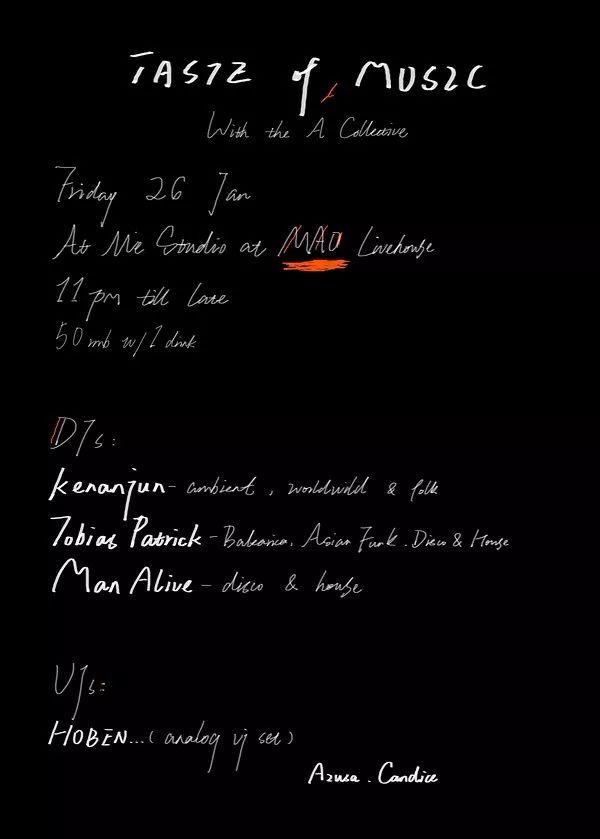 TASTE of MUSIC
With the A Collective
Friday 26 Jan
At Mie Studio at MAO Livehouse
11pm till late
50 rmb w/1 drink
DJs:
Kenanjun - ambient, worldwild & folk
Tobias Patrick - Balearica, Asian Funk. Disco & House
Man Alive - disco & house
VJs:
HOBEN...(analog vj set)
Azusa. Candice